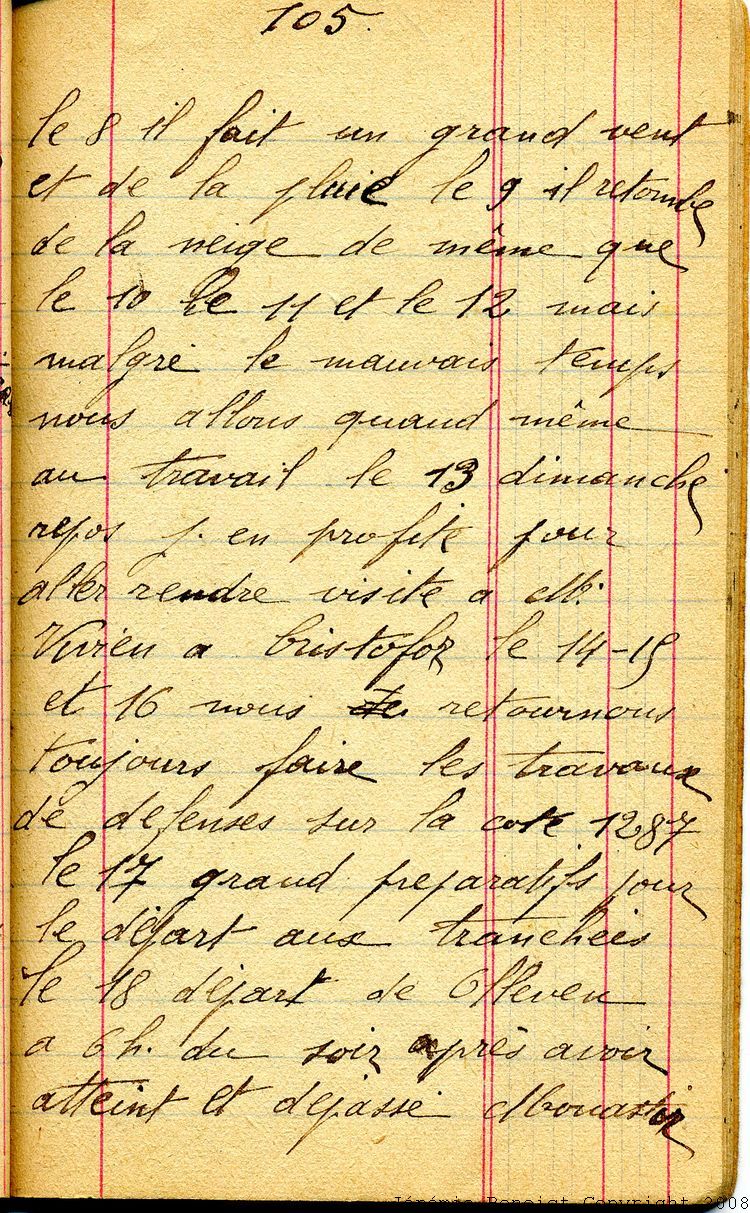 105.
le 8 il fait un grand vent
et de la pluie le 9 il retombe
de la neige de même que
le 10 le 11 et le 12 mais
malgré le mauvais temps
nous allons quand même
au travail le 13 dimanche
repos j. en profite pour
aller rendre visite a M.
Vivien a Cristofor le 14-15
et 16 nous retournons
toujours faire les travaux
de defenses sur la cote 1287
le 17 grand preparatifs pour
le départ aux tranchées
le 18 départ de
a 6h. du soir après avoir
atteint et depassé Monastir
Jérémie Benoist Copyright 2008